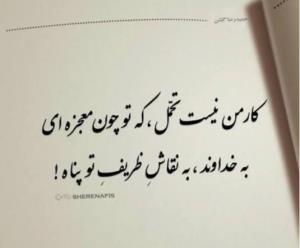 حمیدرضا گلشن
کار من نیست تحمّل ، که تو چون معجزه ای
به خداوند ، به نقاشِ ظریفِ تو پناه !
SHERENAFIS